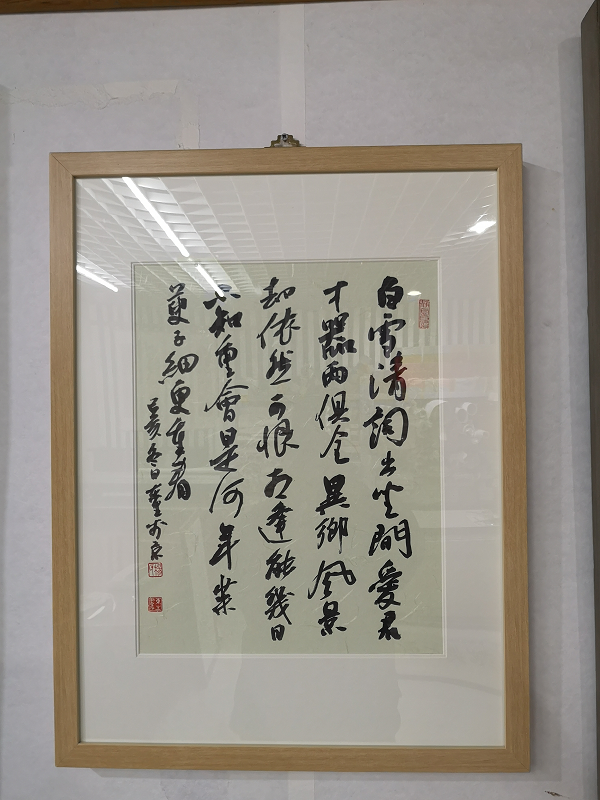 白雪清詞出坐間愛君
才器兩俱全異鄉風景
却依然可恨相逢能幾日
不知重會是何年茱
萸子細更重看
己亥冬日